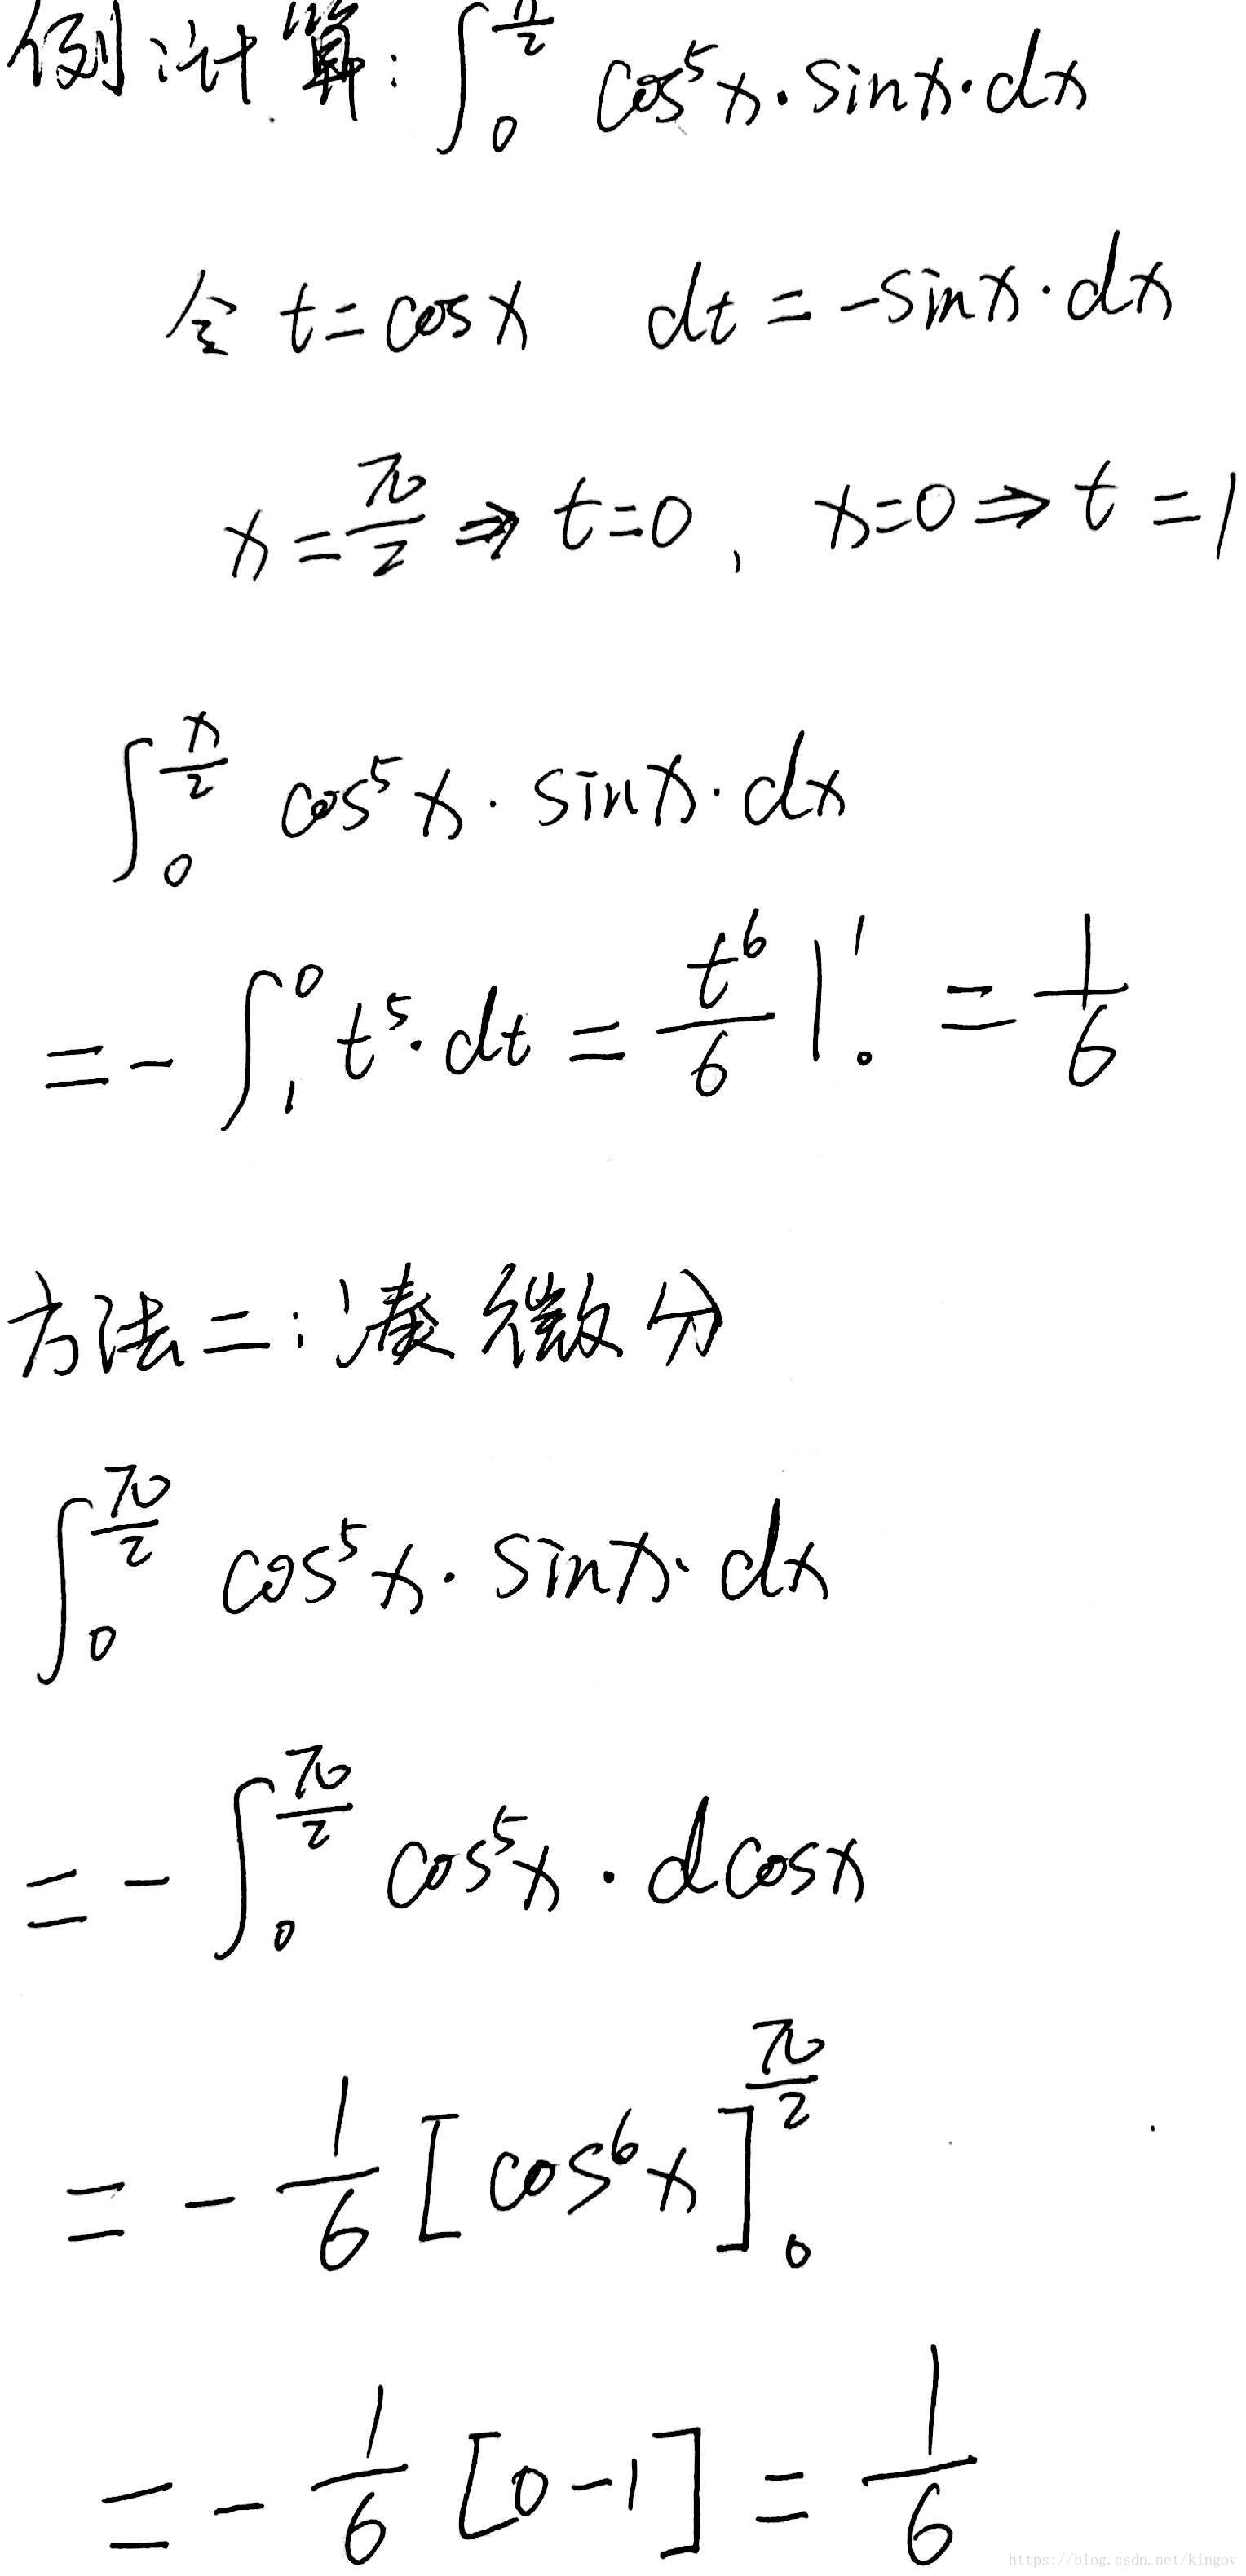 例:计算: ∫₀^(π/2) cos⁵x·sinx·dx
令 t=cosx dt=-sinx·dx
x=π/2 ⇒ t=0, x=0 ⇒ t=1
∫₀^(π/2) cos⁵x·sinx·dx
=-∫₁⁰ t⁵·dt = t⁶/6 |₀¹ = 1/6
方法二:凑微分
∫₀^(π/2) cos⁵x·sinx·dx
=-∫₀^(π/2) cos⁵x·dcosx
=-1/6 [cos⁶x]₀^(π/2)
=-1/6 [0-1] = 1/6
https://blog.csdn.net/kingov